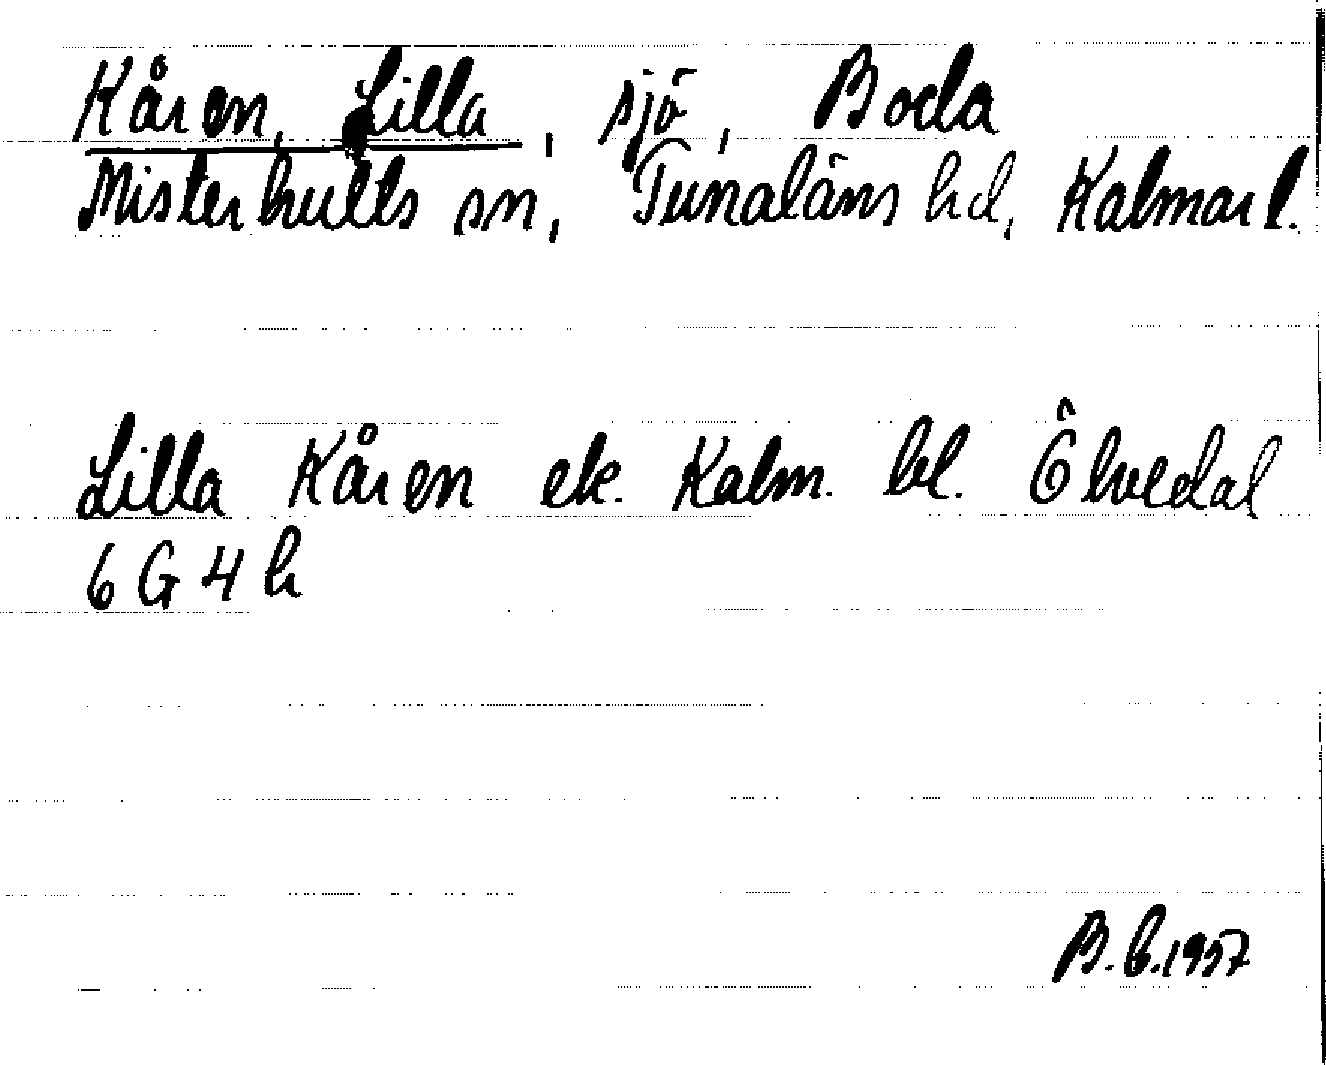 Kåren, Lilla, sjö, Boda
Misterhults sn, Tunaläns hd, Kalmar l.
Lilla Kåren ek. Kalm. bl. Ölvedal
6 G 4 h
B.G. 1957